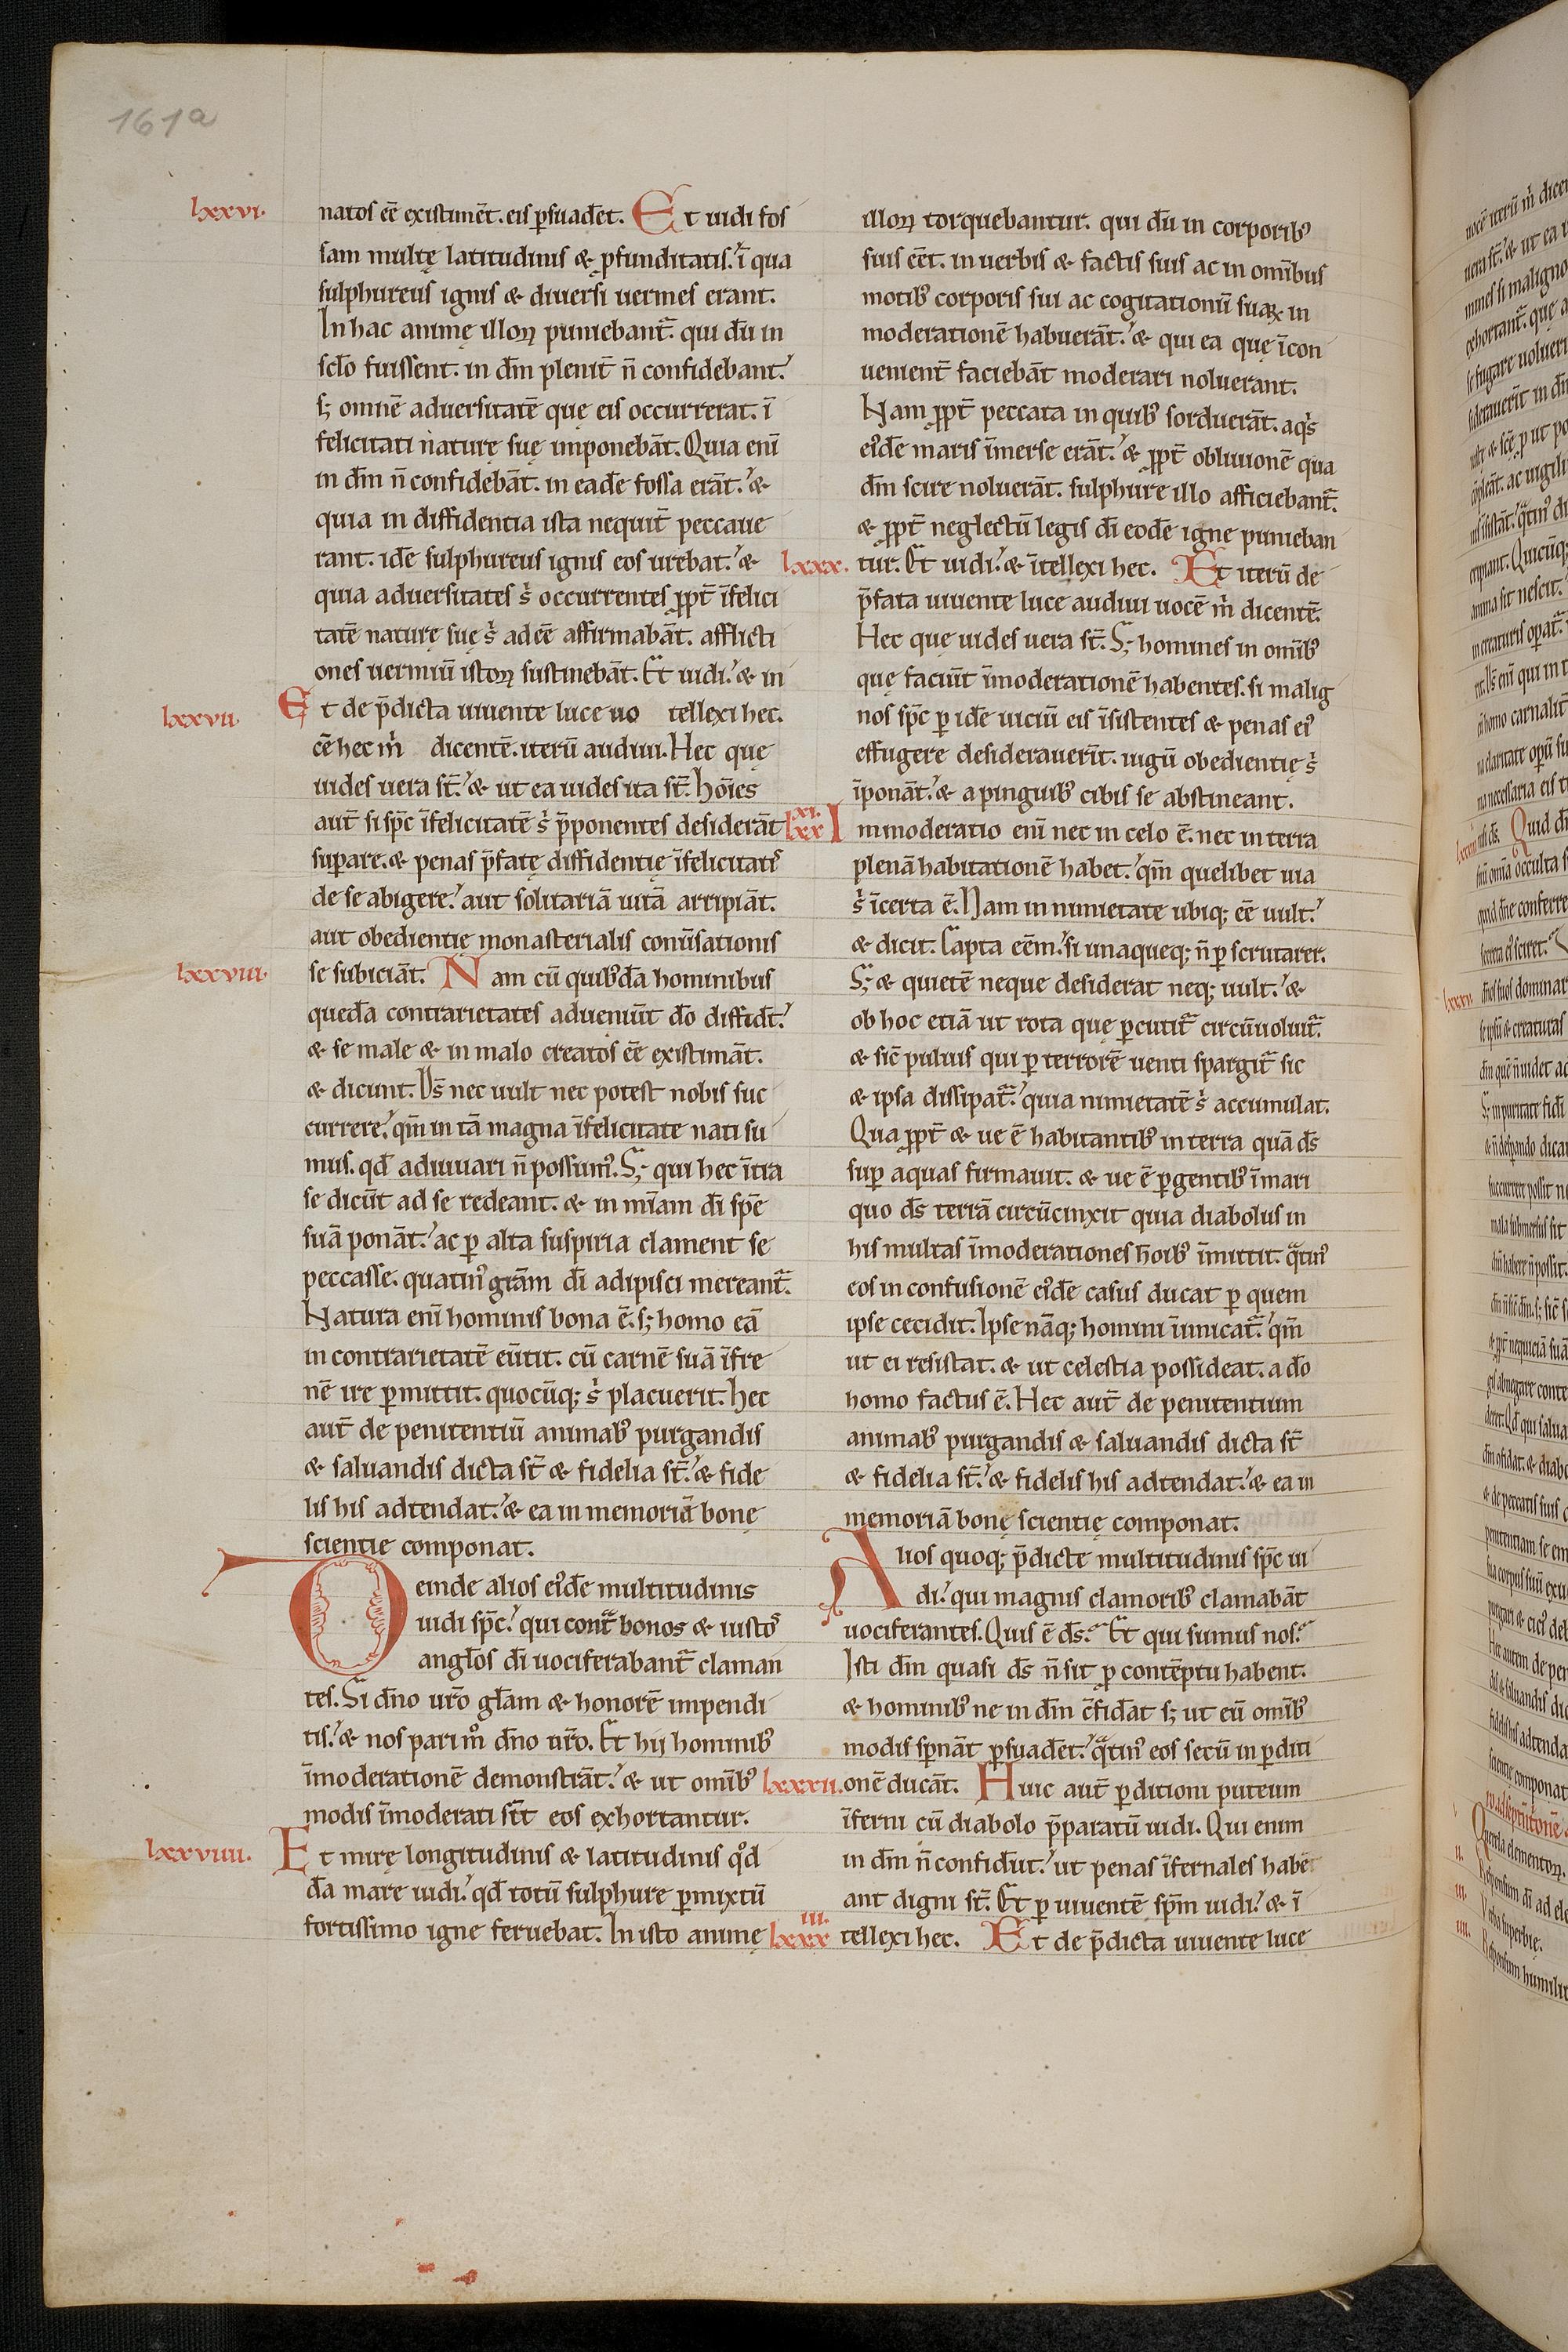 161a
lxxvi.
natos ēē existim̄et. eis ꝑsuadet. Et uidi fos
sam multę latitudinis & ꝓfunditatis. ī qua
sulphureus ignis & diuersi uermes erant.
In hac animę illoꝝ puniebant̄ qui dū in
scl̄o fuissent. in dm̄ plenit̄ n̄ confidebant.
s; omnē aduersitatē que eis occurrerat. ī
felicitati naturę suę imponebāt. Quia eni̅
in dm̄ n̄ confidebāt. in eadē fossa erāt. &
quia in diffidentia ista nequit̄ peccaue
rant. idē sulphureus ignis eos urebat. &
quia aduersitates s̄ occurrentes ꝓpt̄ īfelici
tatē naturę suę s̄ adeē affirmabāt. afflicti
ones uermiū istoꝝ sustinebāt. Et uidi. & in
lxxvii.
Et de p̄dicta uiuente luce uo tellexi hec.
cē hec m̄ dicentē. iterū audiui. Hec que
uides uera st̄. & ut ea uides ita st̄. hoīes
aut̄ si spc̄ īfelicitatē s̄ p̄ponentes desiderāt
suꝑare. & penas p̄fatę diffidentię īfelicitatis
de se abigere. aut solitariā uitā arripiāt.
aut obedientię monasterialis conūsationis
lxxviii.
se subiciāt. Nam cū quibꝰda hominibus
queda contrarietates adueniūt do diffidt̄.
& se male & in malo creatos ēē existimāt.
& dicunt. Ds̄ nec uult nec potest nobis suc
currere. qm̄ in tā magna īfelicitate nati su
mus. qd̄ adiuuari n̄ possumꝰ. S; qui hec īt̄ra
se dicūt ad se redeant. & in mīam dī spē
suā ponāt. ac ꝑ alta suspiria clament se
peccasse. quatinꝰ grām dī adipisci mereant̄.
Natura eni̅ hominis bona ē. s; homo eā
in contrarietatē eūtit. cū carnē suā īfre
nē ire ꝑmittit. quocūq; s̄ placuerit. hec
aut̄ de penitentiū animabꝰ purgandis
& saluandis dicta st̄ & fidelia st̄. & fide
lis his adtendat. & ea in memoriā bonę
scientię componat.
Deinde alios eiꝰdē multitudinis
uidi spc̄. qui cont̄ bonos & iustos
angl̄os dī uociferabant̄ claman
tes. Si dn̄o ur̄o gl̄am & honorē impendi
tis. & nos pari mꝰ dn̄o ur̄o. Et hij hominibꝰ
īmoderationē demonstrāt. & ut omībꝰ
modis īmoderati sīt eos exhortantur.
lxxviiii.
Et mirę longitudinis & latitudinis qͦd
dā mare uidi. qd̄ totū sulphure ꝑmixtū
fortissimo igne feruebat. In isto animę
illoꝝ torquebantur. qui dū in corporibꝰ
suis eēt. in uerbis & factis suis ac in omībus
motibꝰ corporis sui ac cogitationū suaꝝ in
moderationē habuerāt. & qui ea quę īcon
uenient̄ faciebāt moderari noluerant.
Nam ꝓpt̄ peccata in quibꝰ sorduerāt. aq̄s
eiꝰdē maris īmerse erāt. & ꝓpt̄ obliuionē qua
dm̄ scire noluerāt. sulphure illo afficiebant̄.
& ꝓpt̄ neglectū legis dī eodē igne punieban
lxxx.
tur. Et uidi. & ītellexi hec. Et iterū de
p̄fata uiuente luce audiui uocē m̄ dicentē.
Hec que uides uera st̄. S; homines in omībꝰ
quę faciūt īmoderationē habentes. si malig
nos spc̄ ꝑ idē uiciū eis īsistentes & penas eiꝰ
effugere desiderauerīt. iugū obedientię s̄
īponāt. & a pinguibꝰ cibis se abstineant.
lxxxi.
Inmoderatio eni̅ nec in celo ē. nec in terra
plenā habitationē habet. qm̄ quelibet uia
s̄ īcerta ē. Nam in nimietate ubiq; ēē uult.
& dicit. Capta eēm. si unaqueq; n̄ ꝑscrutarer.
S; & quietē neque desiderat neq; uult. &
ob hoc etiā ut rota quę ꝑcutit̄ circūuoluit̄.
& sic̄ puluis qui ꝑ terrorē uenti spargit̄ sic
& ipsa dissipat̄. quia nimietatē s̄ accumulat.
Qua ꝓpt̄ & ue ē habitantibꝰ in terra quā ds̄
suꝑ aquas firmauit. & ue ē ꝑgentibꝰ ī mari
quo ds̄ terrā circūcinxit quia diabolus in
his multas īmoderationes hoībꝰ īmittit. q̄tinꝰ
eos in confusionē eiꝰdē casus ducat ꝑ quem
ipse cecidit. Ipse nāq; homini inimicat̄. qm̄
ut ei resistat. & ut celestia possideat. a do
homo factus ē. Hec aut̄ de penitentium
animabꝰ purgandis & saluandis dicta st̄
& fidelia st̄. & fidelis his adtendat. & ea in
memoriā bonę scientię componat.
Alios quoq; p̄dictę multitudinis spc̄ ui
di. qui magnis clamoribꝰ clamabāt
uociferantes. Quis ē ds̄. Et qui sumus nos.
Isti dm̄ quasi ds̄ n̄ sit ꝑ contēptu habent.
& hominibꝰ ne in dm̄ cfidāt s; ut eū omībꝰ
modis sꝑnāt ꝑsuadet. q̄tinꝰ eos secū in ꝑditi
lxxxii.
onē ducāt. Huic aut̄ ꝑditioni puteum
īferni cū diabolo p̄paratū uidi. Qui enim
in dm̄ n̄ confidūt. ut penas īfernales habe
ant digni st̄. Et ꝑ uiuentē spm̄ uidi. & ī
lxxxiii.
tellexi hec. Et de p̄dicta uiuente luce